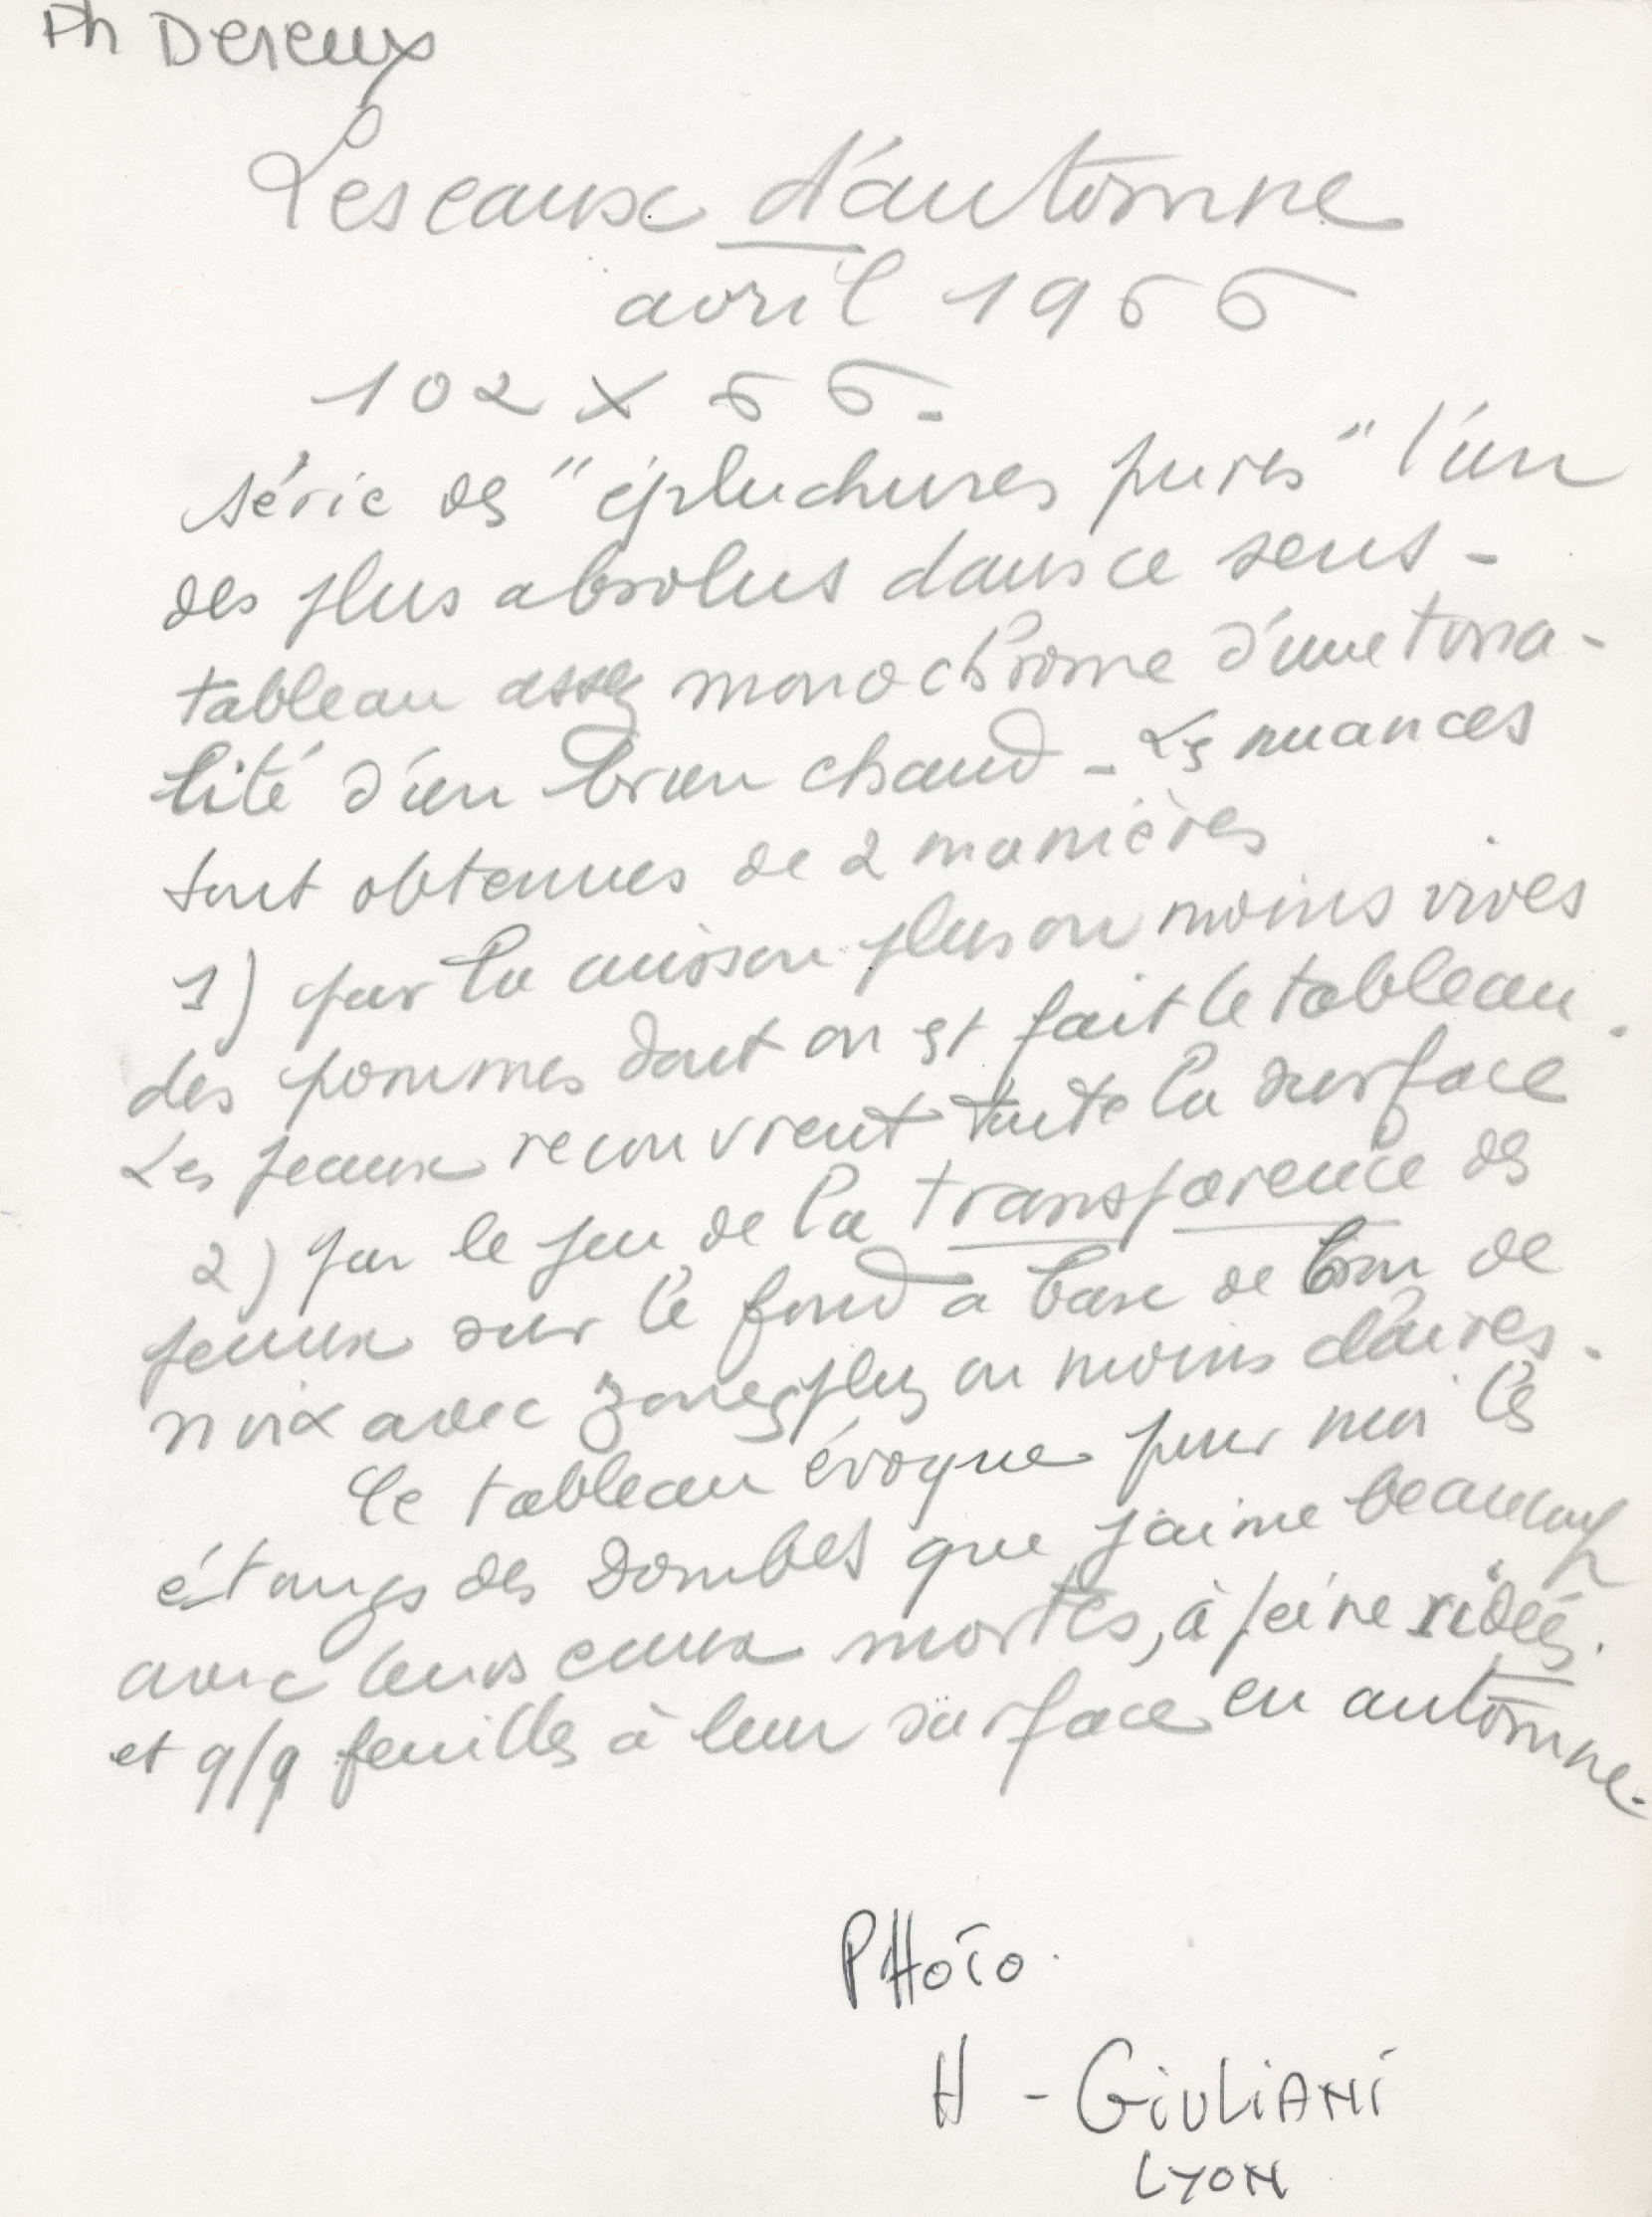 Ph Dereux
Les eaux d'automne
avril 1966
102 x 66.
série des "épluchures pures" l'un
des plus absolus dans ce sens -
tableau assez monochrome d'une tona-
lité d'un brun chaud - Les nuances
sont obtenues de 2 manières
1) par la cuisson plus ou moins vives
des pommes dont on est fait le tableau.
Les peaux recouvrent toute la surface
2) par le jeu de la transparence des
peaux sur le fond a base de brou de
noix avec zones plus ou moins claires.
Ce tableau évoque pour moi les
étangs des Dombes que j'aime beaucoup
avec leurs eaux mortes, à peine ridées.
et q/q feuilles à leur surface en automne.
PHOTO.
H - GiULiANi
LYON